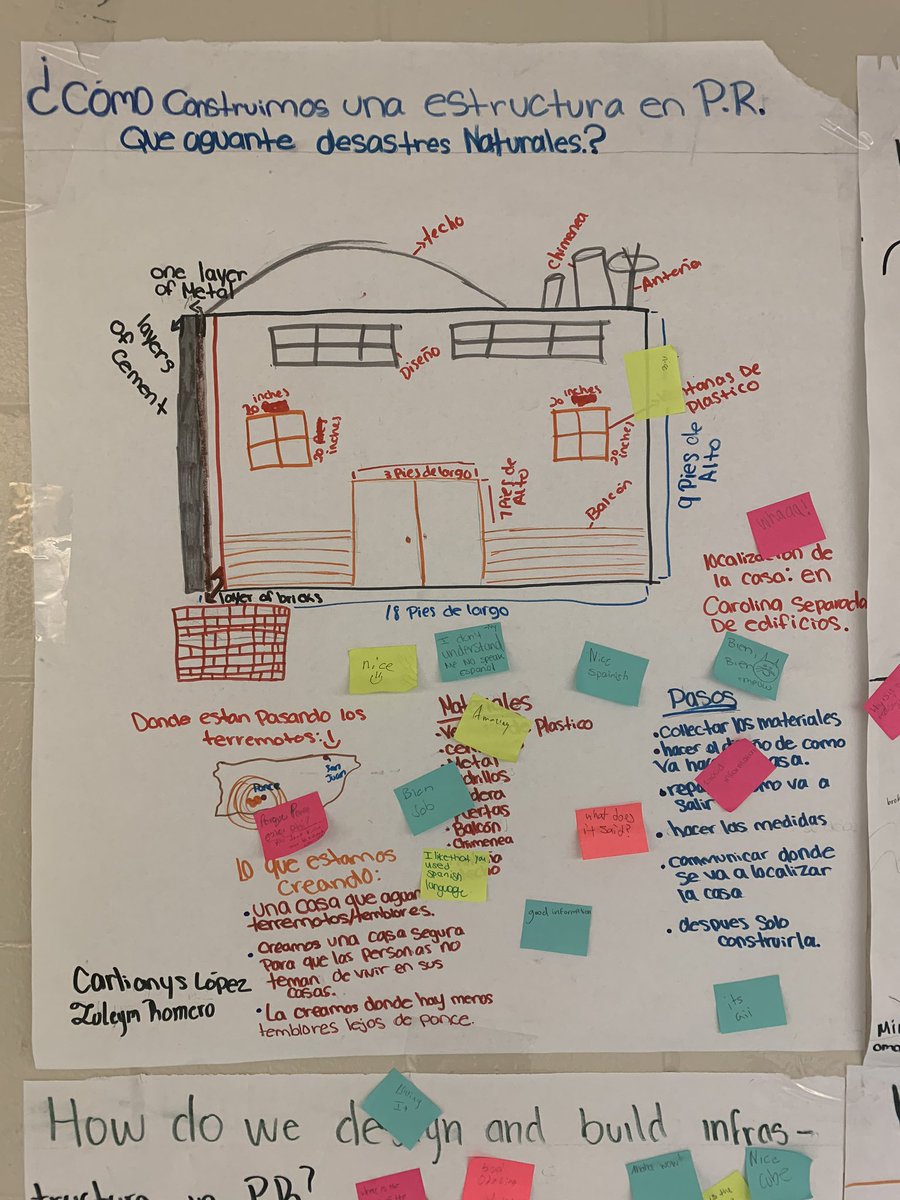 ¿Cómo Construimos una estructura en P.R.
Que aguante desastres Naturales.?
techo
Chimenea
Anteña
one layer
of Metal
layers
of Cement
Diseño
nice
tanas De
Plastico
20 inches
20
inches
20 inches
20 inches
3 Pies de largo
7 Pies de
Alto
Balcón
9 Pies de
Alto
layer of bricks
18 Pies de largo
Whaaa!
localización de
la casa: en
Carolina Separada
De edificios.
nice
I don't
understand
me no speak
español
Nice
Spanish
Bien,
Bien
Donde estan Pasando los
terremotos:
San
Juan
Ponce
Materiales
Amazing
Plastico
Metal
drillos
dera
uertas
• Balcón
• Chimenea
Bien
Job
I like that you
used
spanish
language
what does
it said?
good information
Pasos
• Collectar los materiales
• hacer el diseño de como
va hacer casa.
• repa omo va a
salir
• hacer las medidas
• communicar donde
se va a localizar
la casa
• despues Solo
construirla.
Good
information
its
lo que estamos
creando:
• una casa que aguan
terremotos/temblores.
• Creamos una casa segura
Para que las Personas no
teman de vivir en sus
casas.
• La creamos donde hay menos
temblores lejos de Ponce.
Carlianys López
Zuleym Romero
How do we design and build infras-
tructure in PR?
Nice
cube